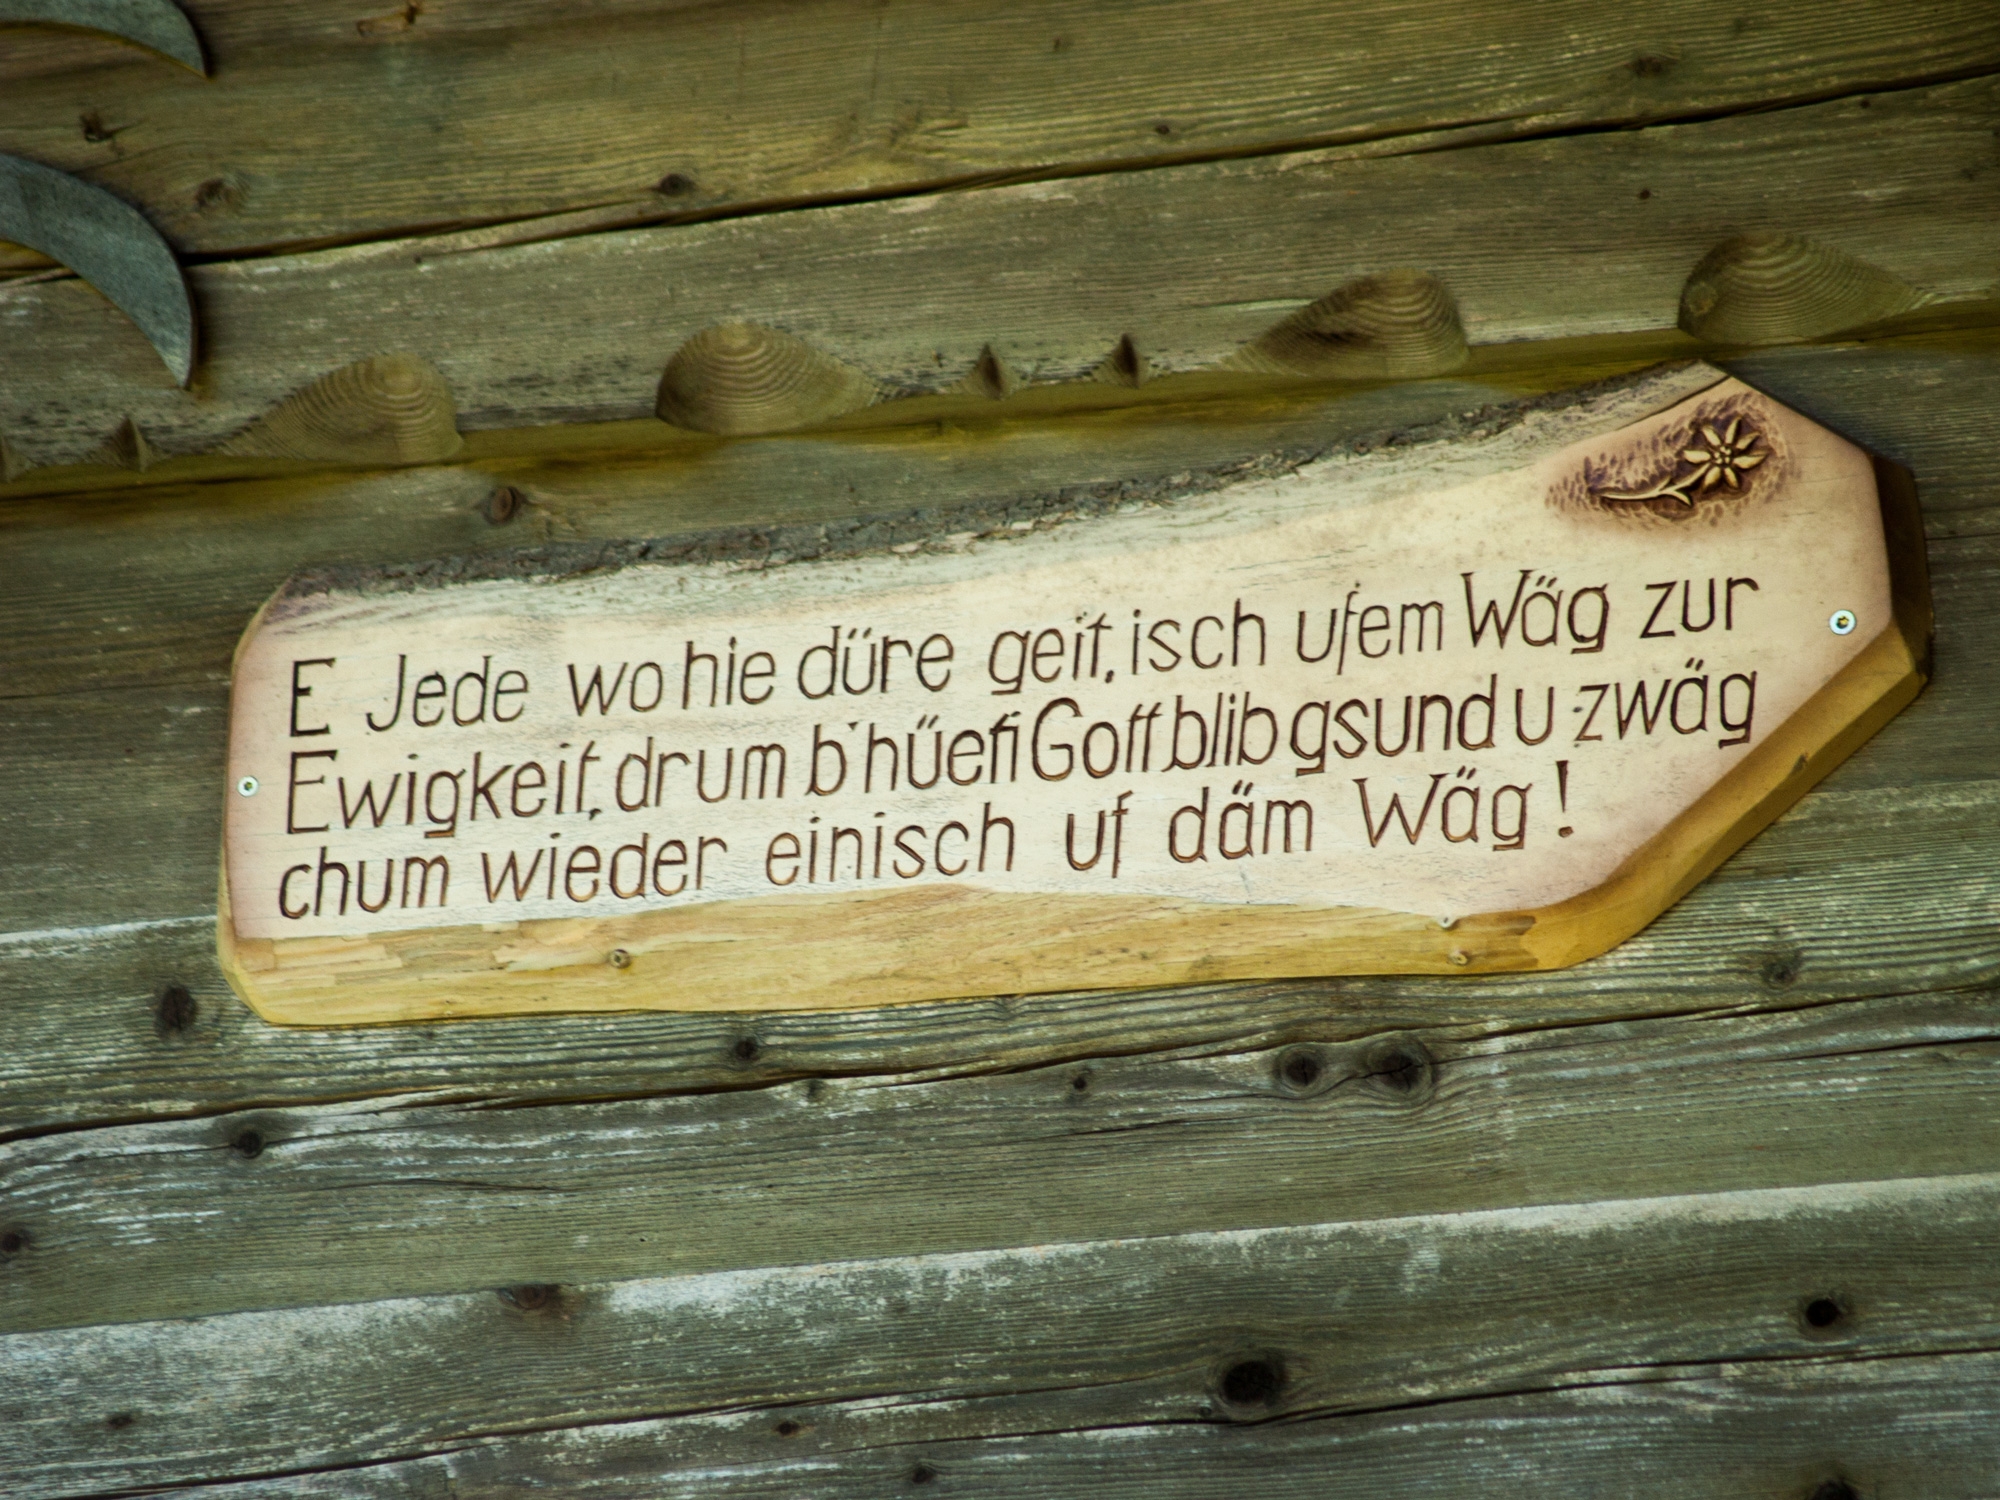 E Jede wo hie düre geit, isch ufem Wäg zur
Ewigkeit, drum b'hüeti Gott blib gsund u zwäg
chum wieder einisch uf däm Wäg!